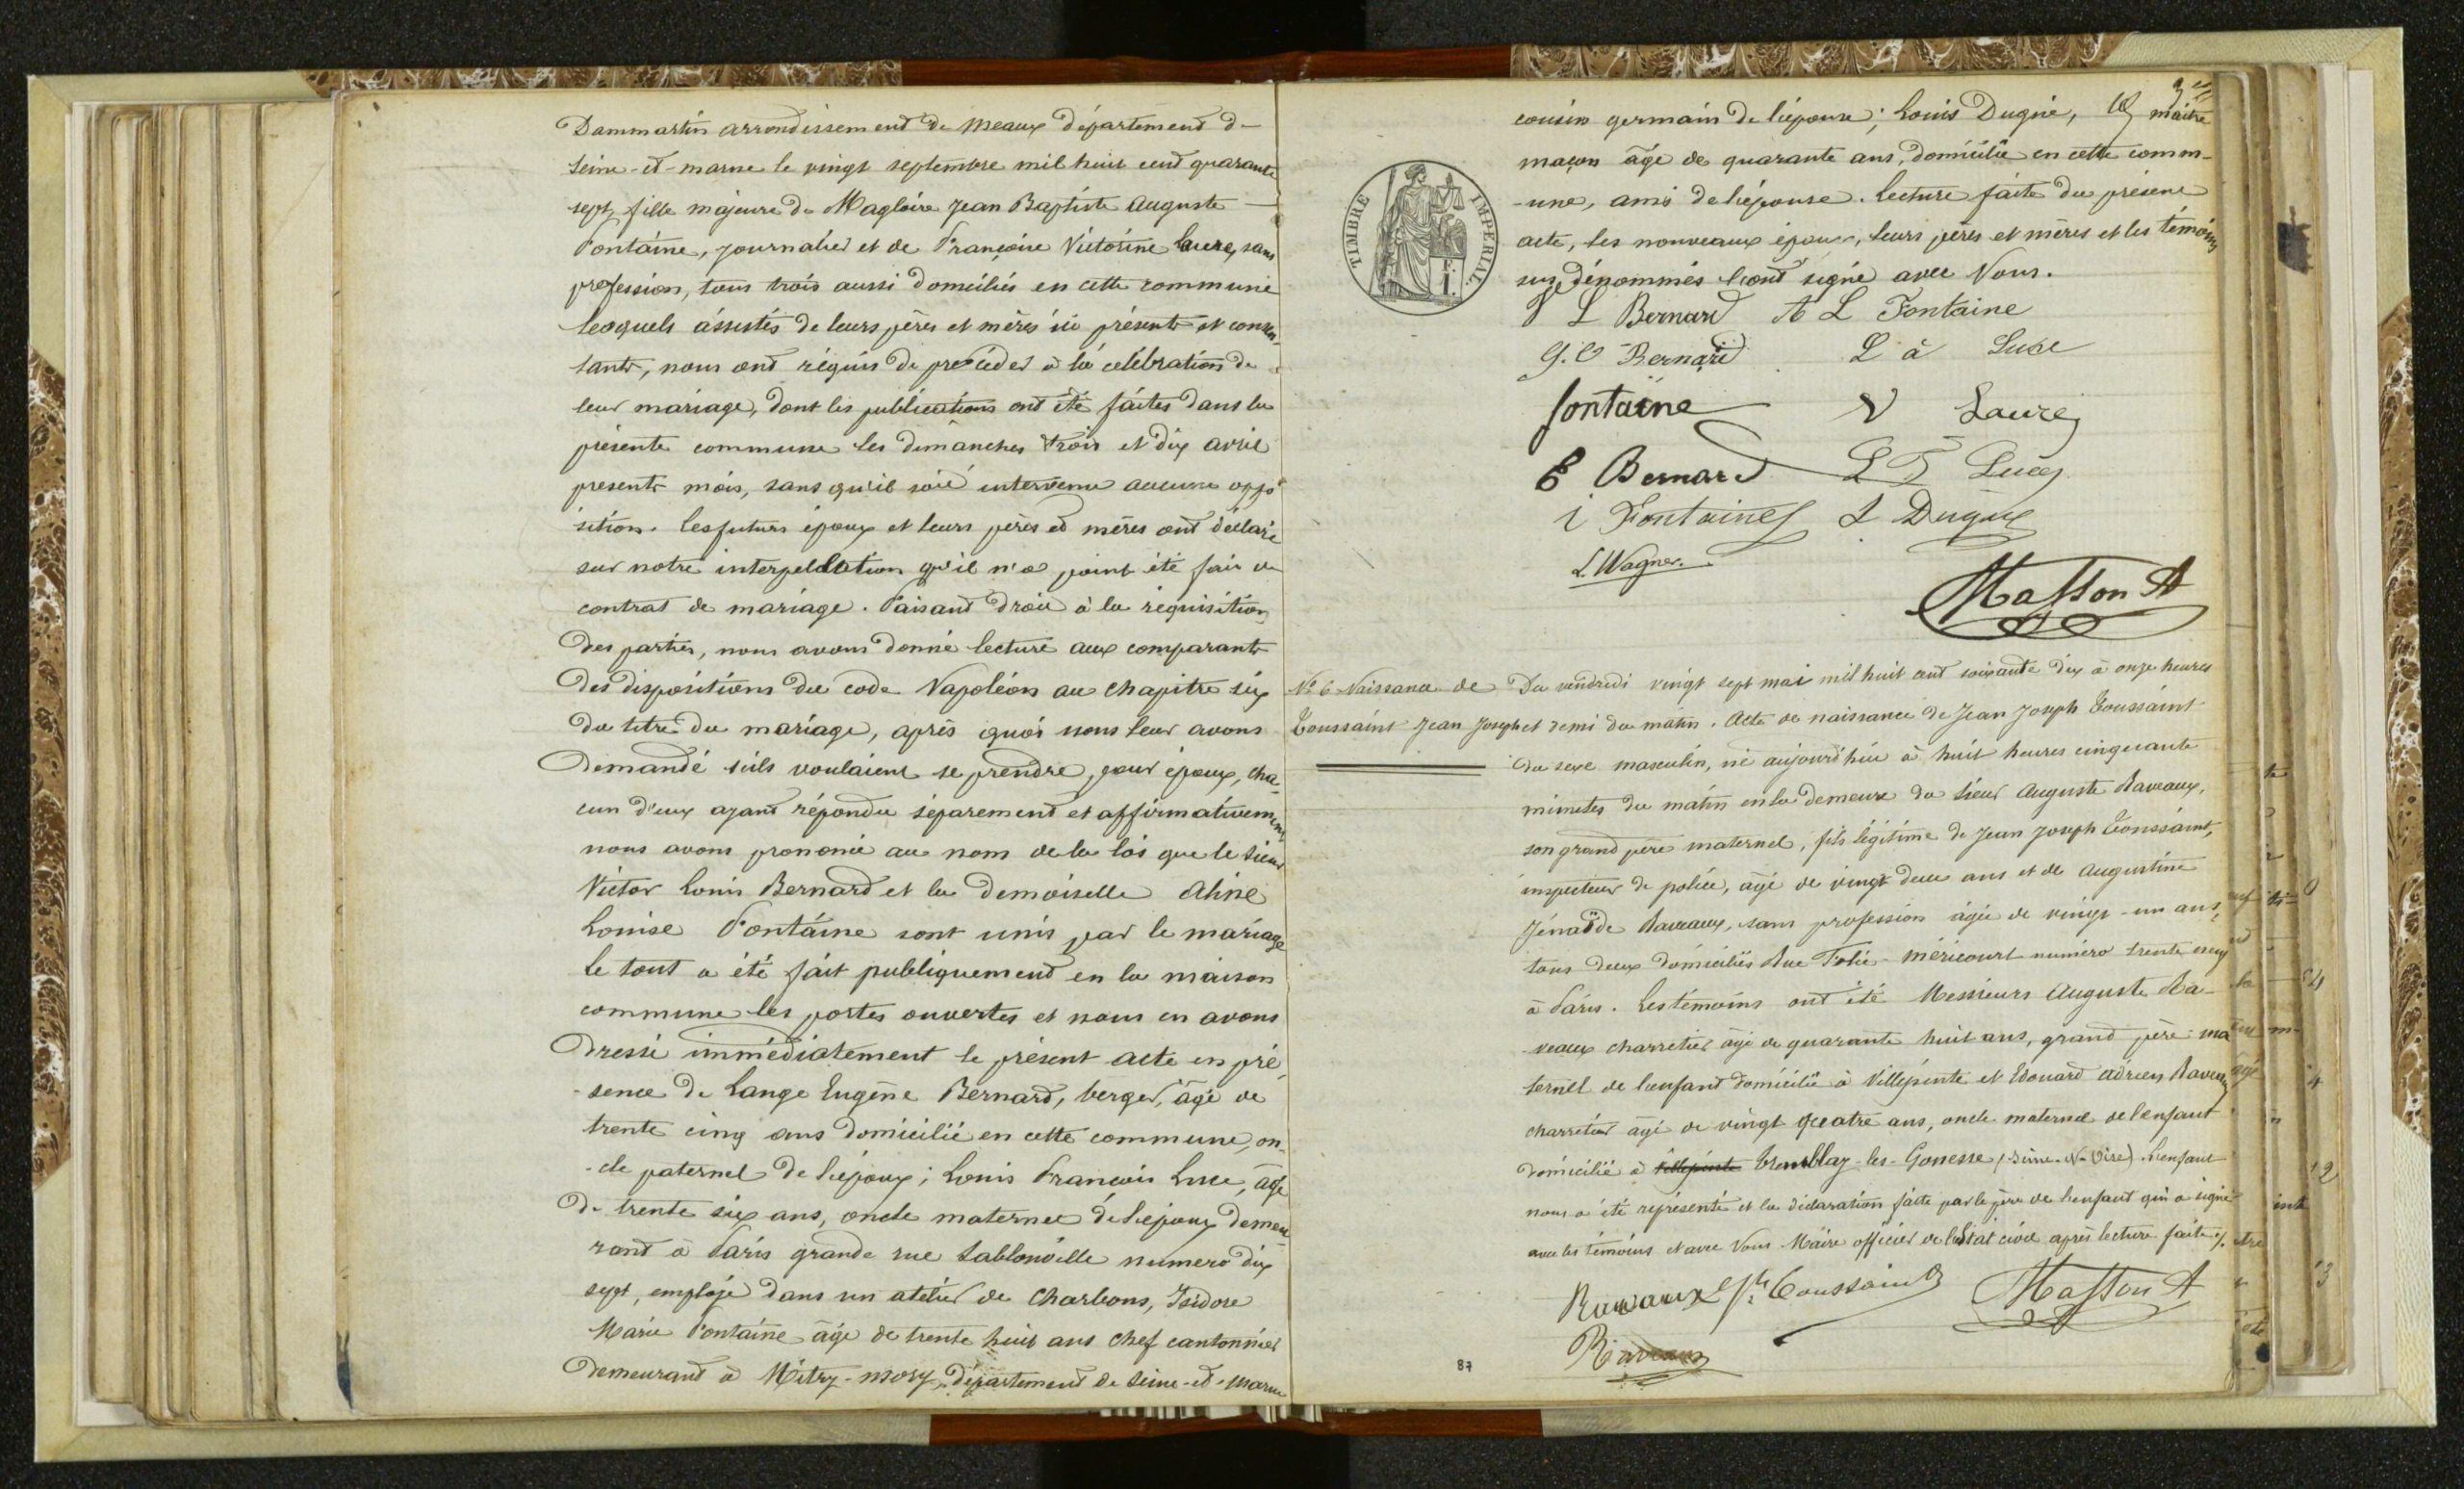 Dammartin arrondissement de Meaux département d-
Seine-et-marne le vingt septembre mil huit cent quarante
sept, fille majeure de Magloire Jean Baptiste Auguste
Fontaine, journalier et de Françoise Victorine Laure, sans
profession, tous trois aussi domiciliés en cette commune
lesquels assistés de leurs pères et mères ici présents et consen-
tants, nous ont réquis de procéder à la célébration de
leur mariage, dont les publications ont été faites dans la
présente commune les dimanches trois et dix avril
présents mois, sans qu'il soit intervenu aucune oppo
sition. Les futurs époux et leurs pères et mères ont déclaré
sur notre interpellation qu'il n'a point été fait de
contrat de mariage. Faisant droit à la réquisition
des parties, nous avons donné lecture aux comparants
des dispositions du code Napoléon au chapitre six
du titre du mariage, après quoi nous leur avons
demandé s'ils voulaient se prendre pour époux, cha-
cun d'eux ayant répondu séparement et affirmativement
nous avons prononcé au nom de la loi que le sieur
Victor Louis Bernard et la demoiselle Aline
Louise Fontaine sont unis par le mariage
le tout a été fait publiquement en la maison
commune les portes ouvertes et nous en avons
dressé immédiatement le présent acte en pré
-sence de Lange Eugène Bernard, berger, âgé de
trente cinq ans domicilié en cette commune, on-
-cle paternel de l'époux; Louis François Luce, âgé
de trente six ans, oncle maternel de l'époux demeu
rant à Paris grande rue Sablonville numero dix
sept, employé dans un atelier de charbons, Isidore
Marie Fontaine âgé de trente huit ans chef cantonnier
demeurant à Mitry-mory, département de Seine-et-marne
cousin germain de l'épouse; Louis Dugué, maître
maçon âgé de quarante ans, domicilié en cette comm-
-une, ami de l'épouse. Lecture faite du présent
acte, les nouveaux époux, leurs pères et mères et les témoins
sus dénommés l'ont signé avec Nous.
TIMBRE IMPÉRIAL
V L Bernard A L Fontaine
Bernard L à Luce
fontaine V Laure
E Bernard L F Luce
i Fontaine L Dugué
L. Wagner.
Masson A
No 6 Naissance de
Toussaint Jean Joseph
Du vendredi vingt sept mai mil huit cent soixante dix à onze heures
et demi du matin. Acte de naissance de Jean Joseph Toussaint
du sexe masculin, né aujourd'hui à huit heures cinquante
minutes du matin en la demeure du sieur Auguste Raveaux,
son grand père maternel, fils légitime de Jean Joseph Toussaint,
inspecteur de police, âgé de vingt deux ans et de Augustine
Zénaïde Raveaux, sans profession âgée de vingt-un ans,
tous deux domiciliés Rue Folie-méricourt numéro trente neuf
à Paris. Les témoins ont été Messieurs Auguste Ra-
-veaux charretier âgé de quarante huit ans, grand père ma
ternel de l'enfant domicilié à Villepinte et Edouard Adrien Raveaux
charretier âgé de vingt quatre ans, oncle maternel de l'enfant
domicilié à Villepinte Tremblay-les-Gonesse (Seine-et-Oise). L'enfant
nous a été représenté et la déclaration faite par le père de l'enfant qui a signé
avec les témoins et avec Nous Maire officier de l'Etat civil après lecture faite ./.
Raveaux Toussaint Masson A
Raveaux
87